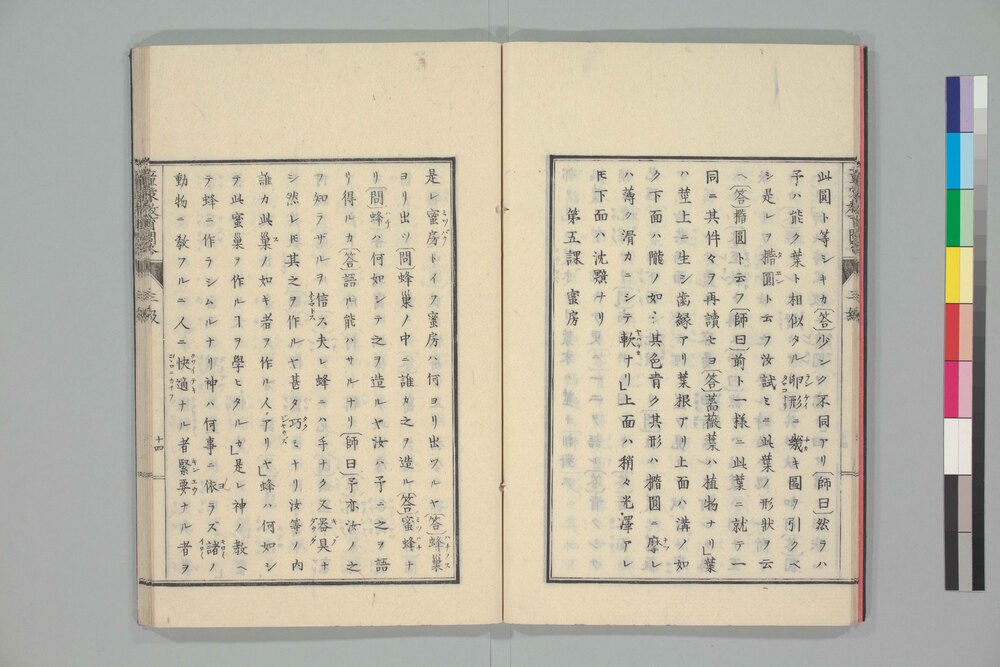 此圓ト等シキカ(答)少シク不同アリ(師曰)然ラハ
予ハ能ク葉ト相似タル卵形ニ幾キ圖ヲ引クベ
シ是レヲ橢圓ト云フ汝試ミニ此葉ノ形狀ヲ云
ヘ(答)橢圓ト云フ(師曰)前ト一樣ニ此葉ニ就テ一
同ニ其件々ヲ再讀セヨ(答)薔薇葉ハ植物ナリ」葉
ハ莖上ニ生シ齒縁アリ葉根アリ上面ハ溝ノ如
ク下面ハ隴ノ如シ其色青ク其形ハ橢圓ニ摩レ
ハ薄ク滑カニシテ軟ナリ」上面ハ稍々光澤アレ
𪜈下面ハ沈黯ナリ
第五課 蜜房
是レ蜜房トイフ蜜房ハ何ヨリ出ツルヤ(答)蜂巢
ヨリ出ツ(問)蜂巢ノ中ニ誰カ之ヲ造ル(答)蜜蜂ナ
リ(問)蜂ハ何如シテ之ヲ造ルヤ汝ハ予ニ之ヲ語
リ得ルカ(答)語ル能ハサルナリ(師曰)予亦汝ノ之
ヲ知ラザルヲ信ス夫レ蜂ニハ手ナク又器具ナ
シ然レ𪜈其之ヲ作ルヤ甚タ巧ミナリ汝等ノ内
誰カ此巢ノ如キ者ヲ作ル人アリヤ」蜂ハ何如シ
テ此蜜巢ヲ作ルヿヲ學ヒタルカ」是レ神ノ教ヘ
テ蜂ニ作ラシムルナリ神ハ何事ニ依ラズ諸ノ
動物ニ教フルニ人ニ快適ナル者緊要ナル者ヲ
三級
十四